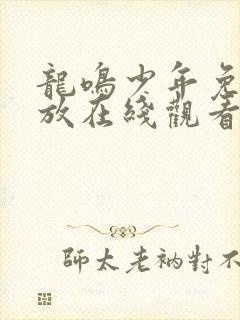 龍鳴少年免
放在綫觀看
師太老衲對不